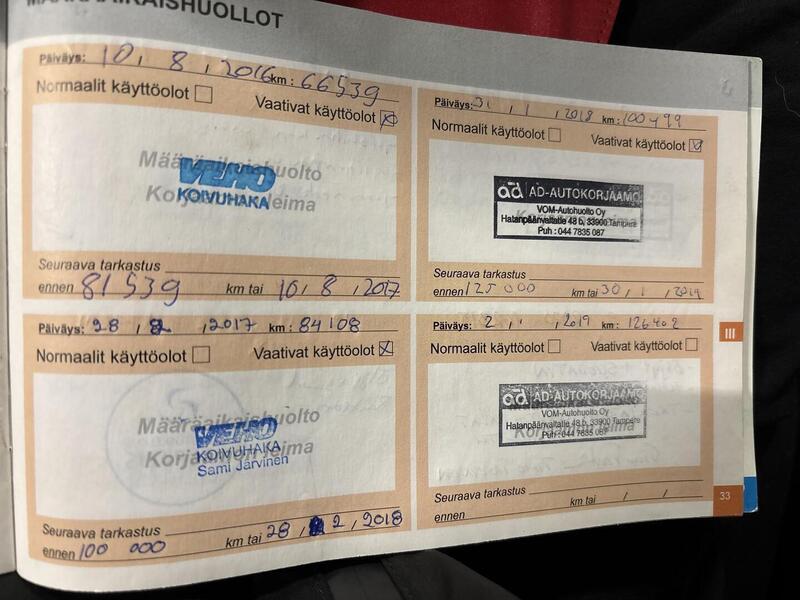 MÄÄRÄAIKAISHUOLLOT
Päiväys: 10 , 8 , 2016 km: 66539
Normaalit käyttöolot
Vaativat käyttöolot
Määräaikaishuolto
Korjaamon leima
VEHO
KOIVUHAKA
Seuraava tarkastus
ennen 81539 km tai 10 , 8 , 2017
Päiväys: 28 , 2 , 2017 km: 84108
Normaalit käyttöolot
Vaativat käyttöolot
Määräaikaishuolto
Korjaamon leima
VEHO
KOIVUHAKA
Sami Järvinen
Seuraava tarkastus
ennen 100 000 km tai 28 , 2 , 2018
Päiväys: 31 , 1 , 2018 km: 100499
Normaalit käyttöolot
Vaativat käyttöolot
ad AD-AUTOKORJAAMO
VOM-Autohuolto Oy
Hatanpäänvaltatie 48 b, 33900 Tampere
Puh : 044 7835 087
Seuraava tarkastus
ennen 125 000 km tai 30 , 1 , 2019
Päiväys: 2 , , 2019 km: 126402
Normaalit käyttöolot
Vaativat käyttöolot
ad AD-AUTOKORJAAMO
VOM-Autohuolto Oy
Hatanpäänvaltatie 48 b, 33900 Tampere
Puh : 044 7835 087
Korjaamon leima
Seuraava tarkastus
ennen km tai / /
III
33